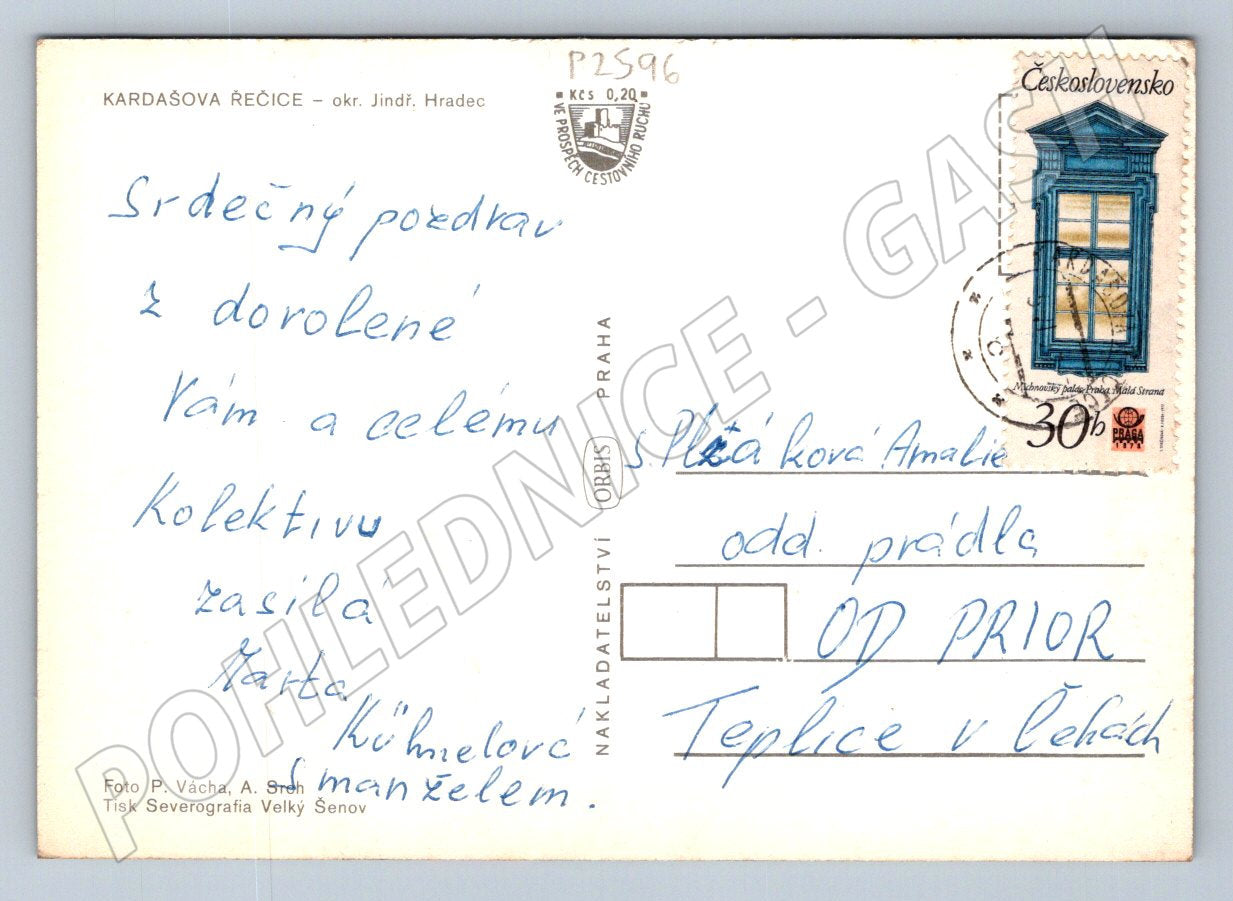 P2596
KARDAŠOVA ŘEČICE – okr. Jindř. Hradec
Kčs 0,20
VE PROSPĚCH CESTOVNÍHO RUCHU
Československo
Michnovský palác, Praha, Malá Strana
30h
PRAGA
1978
Srdečný pozdrav
z dovolené
Vám a celému
Kolektivu
zasílá
Kühnelová
s manželem.
NAKLADATELSTVÍ ORBIS PRAHA
s. Amalie
odd. prádla
OD PRIOR
Teplice v Čehách
Foto P. Vácha, A. Srch
Tisk Severografia Velký Šenov
POHLEDNICE - GASH